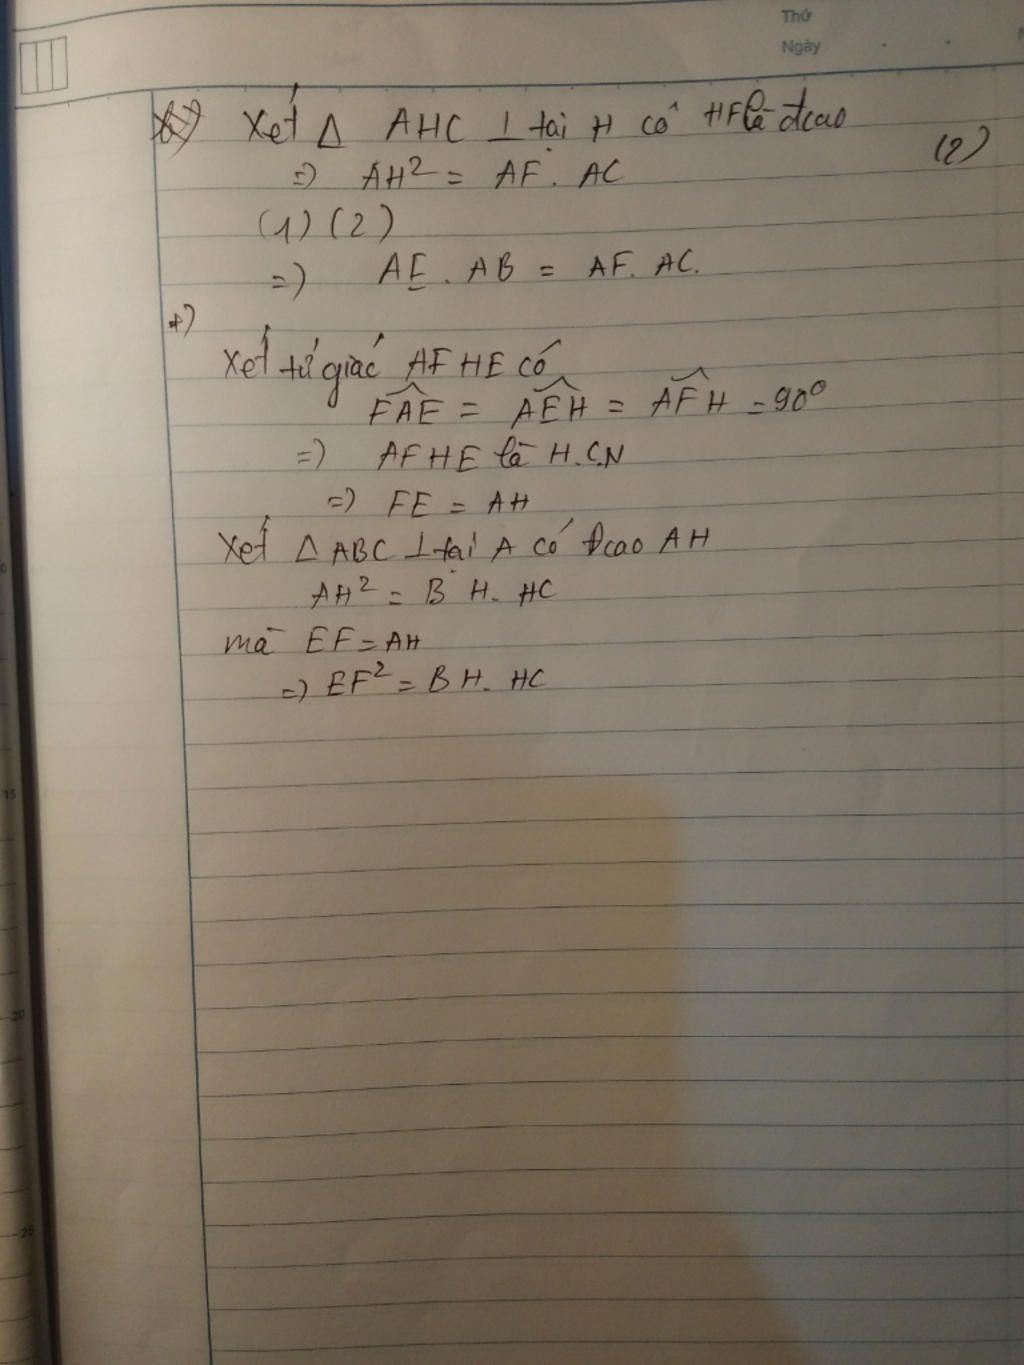 Thứ
Ngày
Xét Δ AHC ⊥ tại H có HF là đcao
=> AH² = AF . AC (2)
(1) (2)
=> AE . AB = AF. AC.
+)
Xét tứ giác AFHE có
FAE = AEH = AFH = 90°
=> AFHE là H.C.N
=> FE = AH
Xét Δ ABC ⊥ tại A có Đcao AH
AH² = B H. HC
mà EF = AH
=> EF² = BH. HC
15
20
25